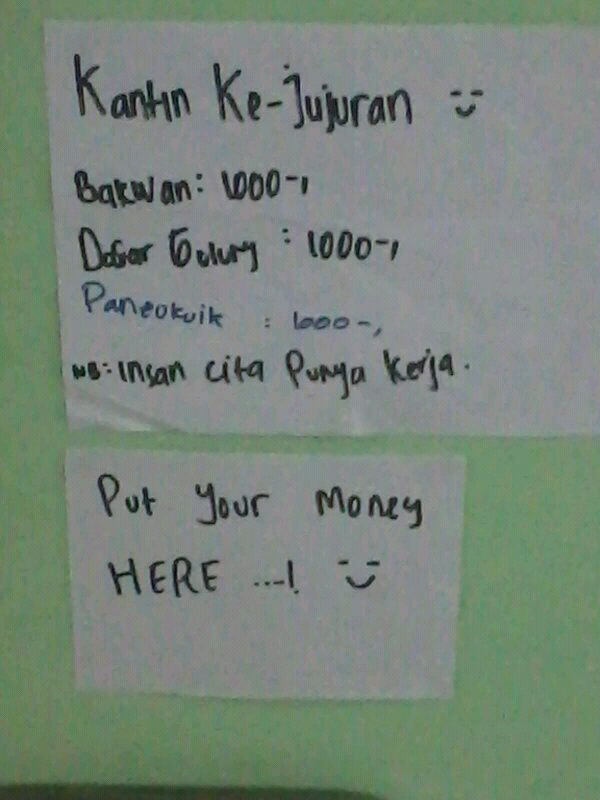 Kantin Ke-Jujuran
Bakwan: 1000-,
Dadar Gulung : 1000-,
Paneokuik : 1000-,
NB: Insan Cita Punya Kerja.
Put Your Money
HERE ...!